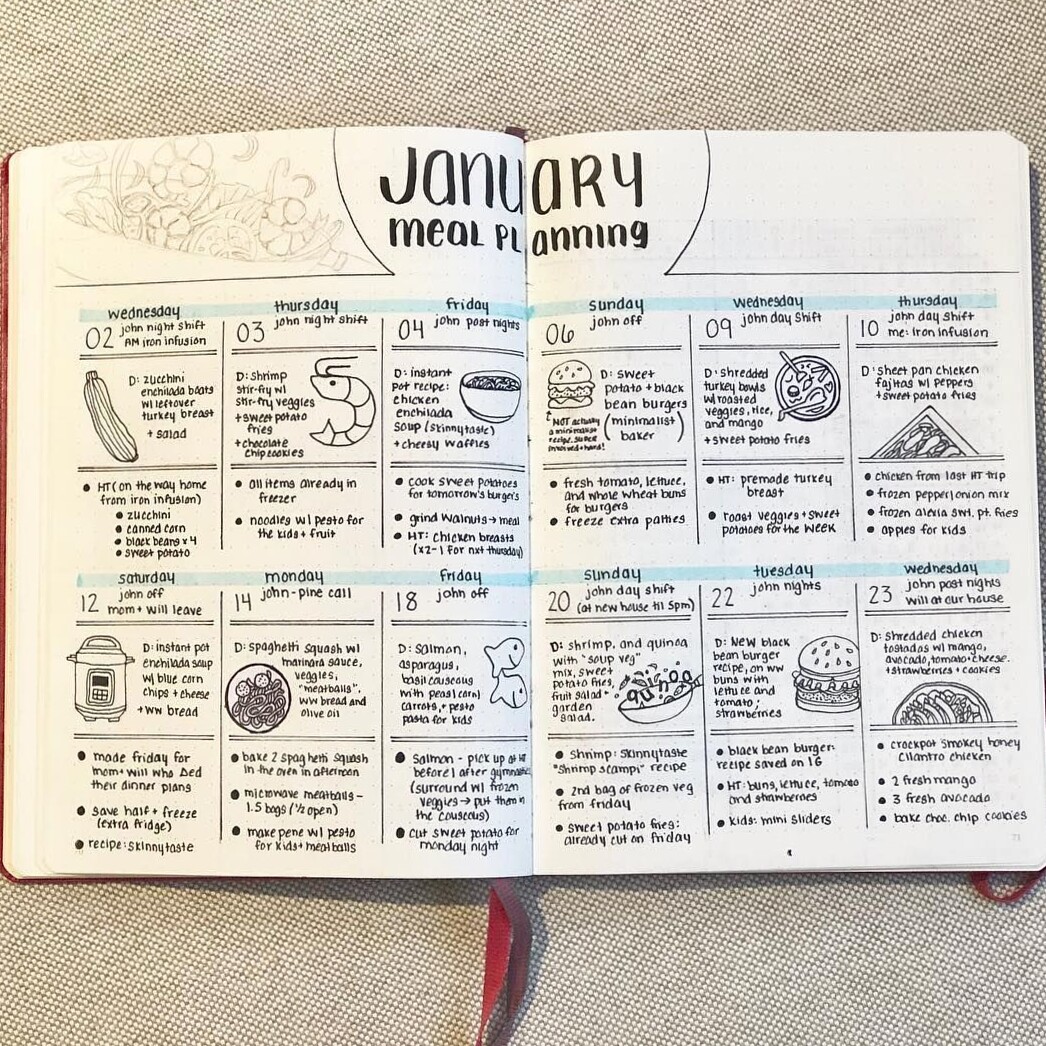 January
meal planning
wednesday
02 john night shift
AM iron infusion
D: zucchini
enchilada boats
w/ leftover
turkey breast
+ salad
HT (on the way home
from iron infusion)
zucchini
canned corn
black beans x 4
sweet potato
thursday
03 john night shift
D: shrimp
stir-fry w/
stir-fry veggies
+ sweet potato
fries
+ chocolate
chip cookies
all items already in
freezer
noodles w/ pesto for
the kids + fruit
friday
04 john post nights
D: instant
pot recipe:
chicken
enchilada
soup (skinnytaste)
+ cheesy waffles
cook sweet potatoes
for tomorrow's burgers
grind walnuts → meal
HT: chicken breasts
(x2-1 for nxt thursday)
sunday
06 john off
D: sweet
potato + black
bean burgers
(minimalist
baker)
NOT actually
a minimalist
recipe. super
involved + hard!
fresh tomato, lettuce,
and whole wheat buns
for burgers
freeze extra patties
wednesday
09 john day shift
D: shredded
turkey bowls
w/ roasted
veggies, rice,
and mango
+ sweet potato fries
HT: premade turkey
breast
roast veggies + sweet
potatoes for the week
thursday
10 john day shift
me: iron infusion
D: sheet pan chicken
fajitas w/ peppers
+ sweet potato fries
chicken from last HT trip
frozen pepper/onion mix
frozen alexia swt. pt. fries
apples for kids
saturday
12 john off
mom + will leave
D: instant pot
enchilada soup
w/ blue corn
chips + cheese
+ ww bread
made friday for
mom + will who bed
their dinner plans
save half + freeze
(extra fridge)
recipe: skinnytaste
monday
14 john - pine call
D: spaghetti squash w/
marinara sauce,
veggies,
"meatballs".
ww bread and
olive oil
bake 2 spaghetti squash
in the oven in afternoon
microwave meatballs -
1.5 bags (1/2 open)
make pene w/ pesto
for kids + meatballs
friday
18 john off
D: salmon,
asparagus,
basil couscous
with peas/corn/
carrots, + pesto
pasta for kids
salmon - pick up at HT
before/after gymnastics
(surround w/ frozen
veggies → put them in
the couscous)
cut sweet potato for
monday night
sunday
20 john day shift
(at new house til 5pm)
D: shrimp, and quinoa
with "soup veg"
mix, sweet
potato fries,
fruit salad +
garden
salad.
quinoa
shrimp: skinnytaste
"shrimp scampi" recipe
2nd bag of frozen veg
from friday
sweet potato fries:
already cut on friday
tuesday
22 john nights
D: NEW black
bean burger
recipe, on ww
buns with
lettuce and
tomato;
strawberries
black bean burger:
recipe saved on IG
HT: buns, lettuce, tomato
and strawberries
kids: mini sliders
wednesday
23 john post nights
will at our house
D: shredded chicken
tostadas w/ mango,
avocado, tomato + cheese.
+ strawberries + cookies
crockpot smokey honey
cilantro chicken
2 fresh mango
3 fresh avocado
bake choc. chip cookies
71